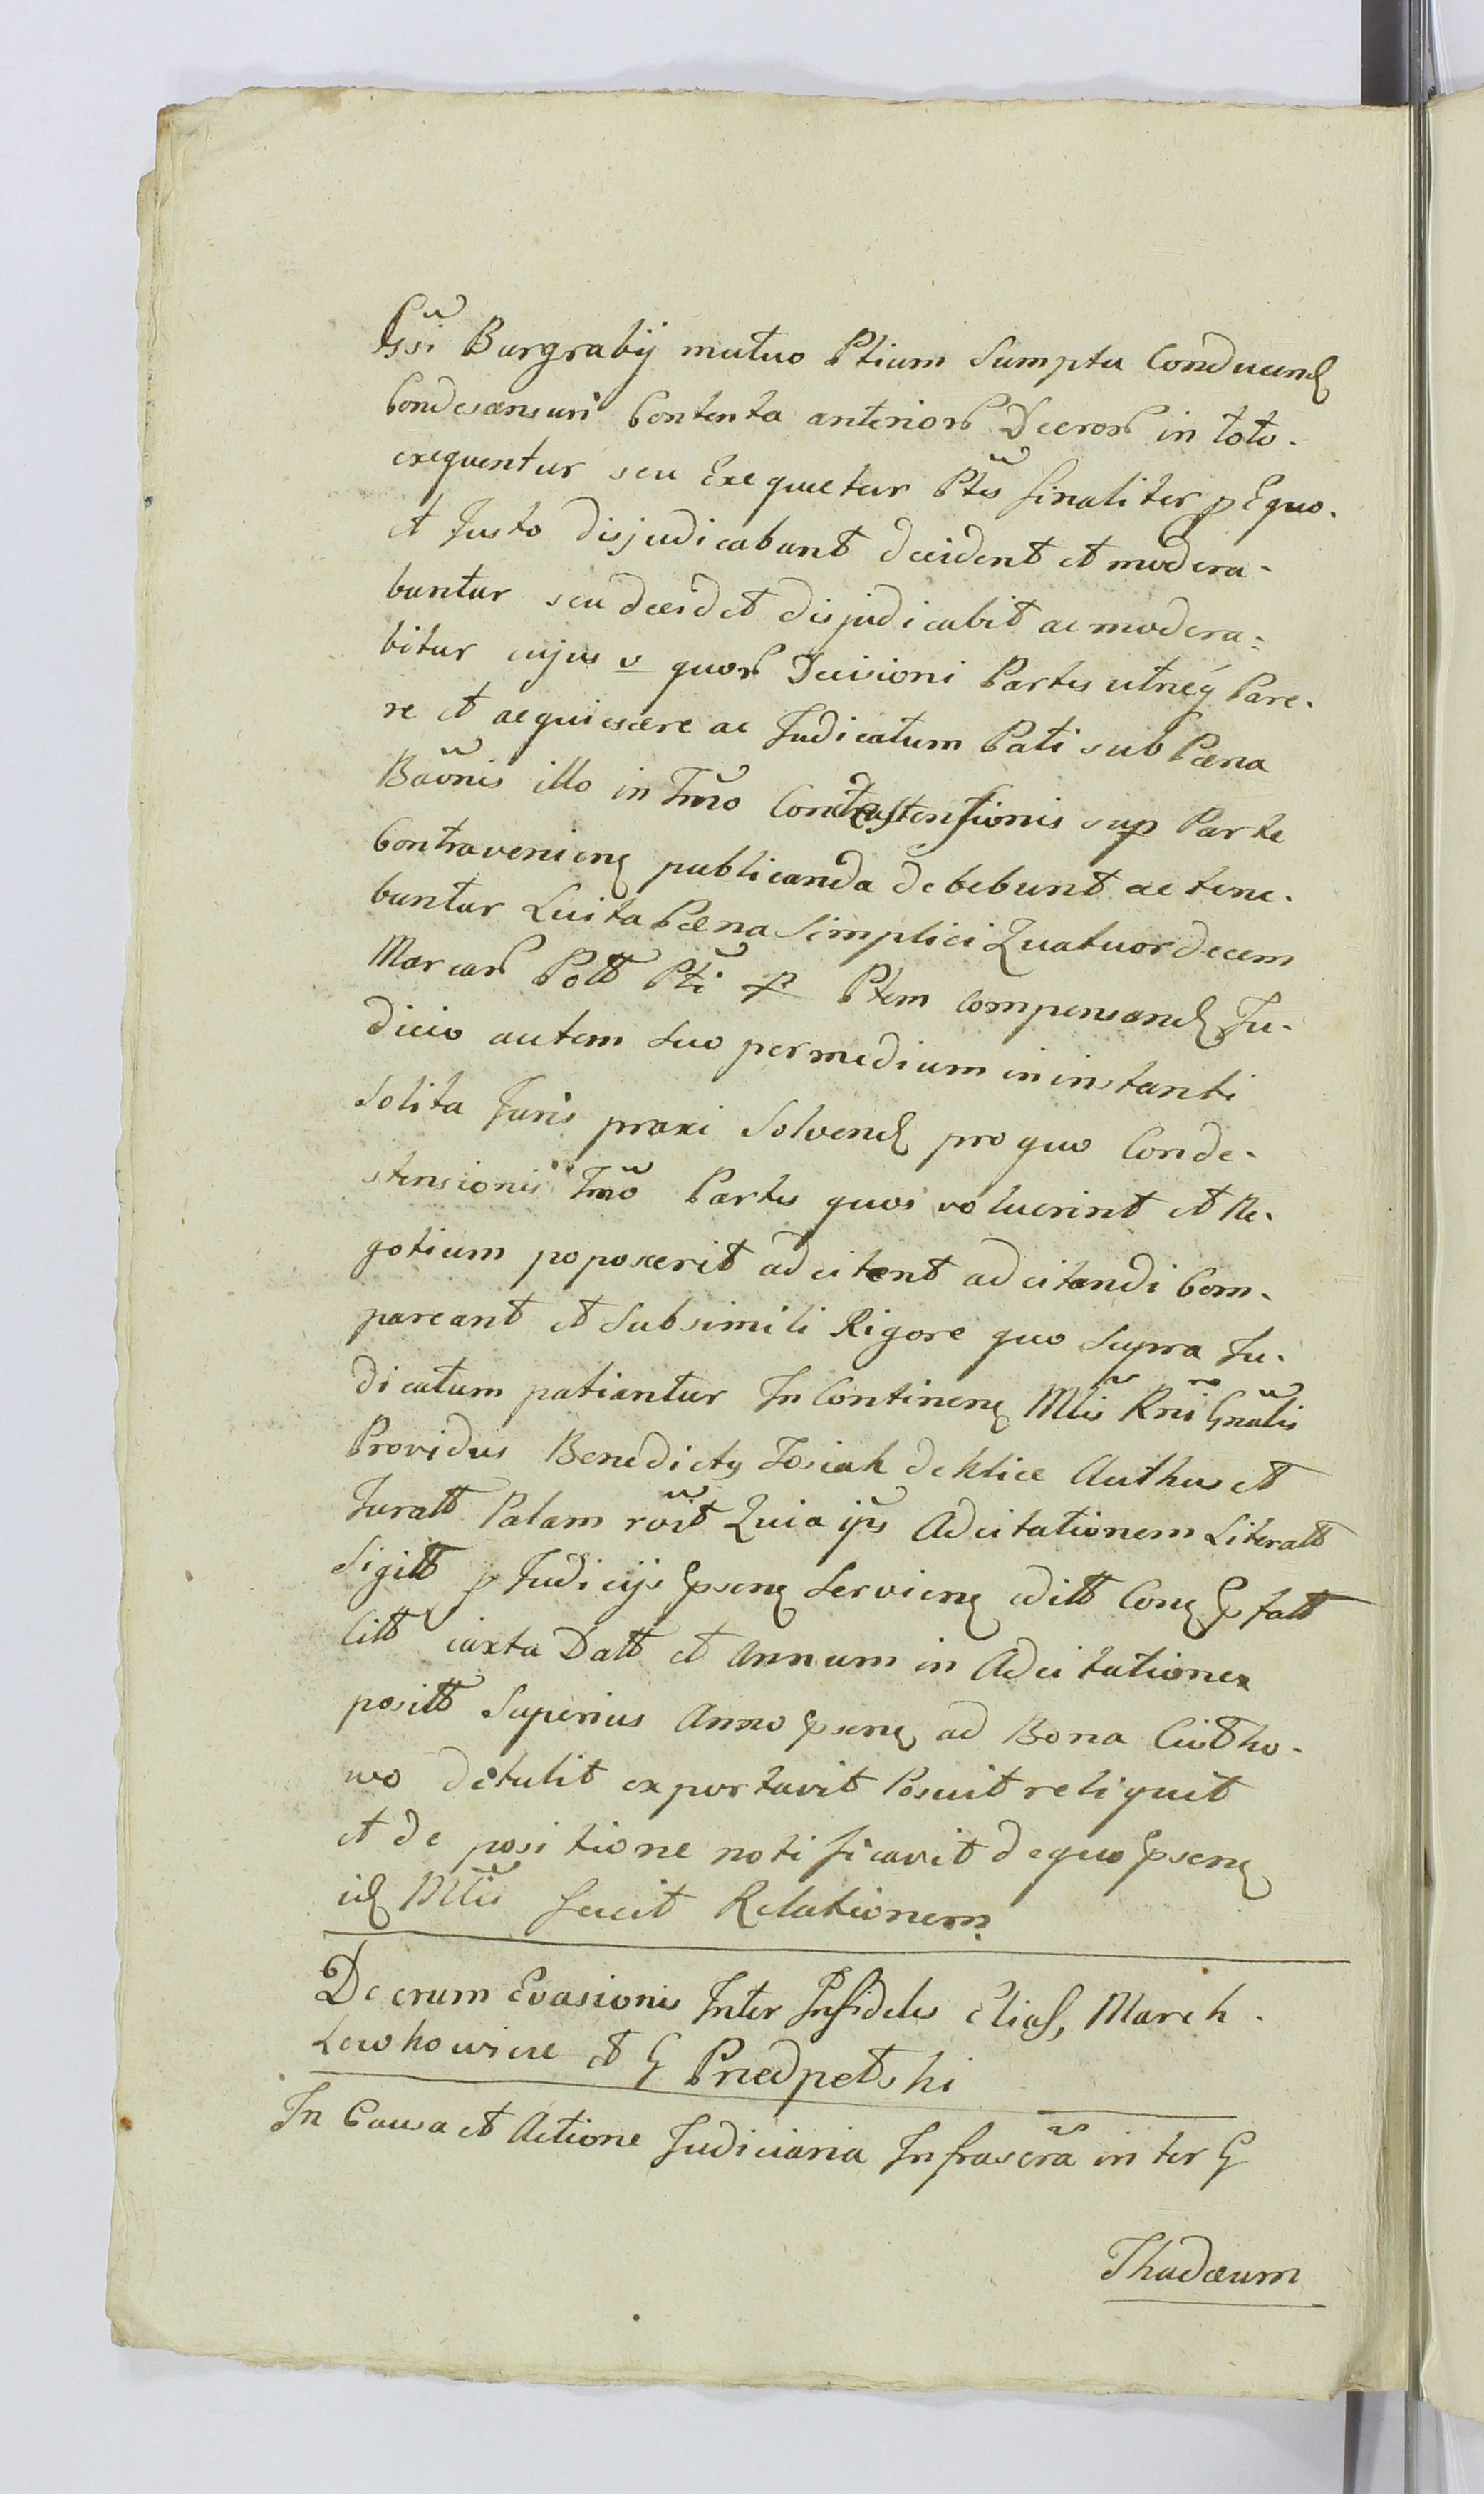 Gsi Burgrabij mutuo Ptium Sumptu Conducend
Condescensuri Contenta anterior Decror in toto.
exequentur seu Exequetur Ptes finaliter p Equo.
et Justo disjudicabunt decident et modera-
buntur seu decidet disjudicabit ac modera-
bitur cujus v quor Decisioni Partes utneq Pare.
re et acquiescere ac Judicatum Pati sub Pœna
Baonis illo in Tmo Condestensionis sup Parte
Contravenien publicanda debebunt ac tene.
buntur Luita Pœna Simplici Quatuordecem
Marcar Poll Pti Ptem Compensand Ju-
dicio autem Suo permedium in instanti
Solita Juris praxi Solvend pro quo Conde-
stensionis Tmo Partes quos voluerint et Ne-
gotium poposcerit adcitent adcitandi Com-
pareant et Subsimili Rigore quo Supra Ju-
dicatum patiantur In Continen Mlis Rni Gnalis
Providus Benedictus de Klice Authus et
Juratt Palam roit Quia ips Adcitationem Literatt
Sigitt p Judicijs psens Servien editt Con p fatt
Citt iuxta Datt et Annum in Adcitatione
positt Superius Anno psen ad Bona
wo detulit exportavit Posuit reliquit
et de positione notificavit de quo psens
id Mlis fecit Relationem
Decrum Evasionis Inter Infideles Elias, March.
Lewkowicze et G Przedpetski
In Causa et Actione Judiciaria Infrascra inter G
Thadæum